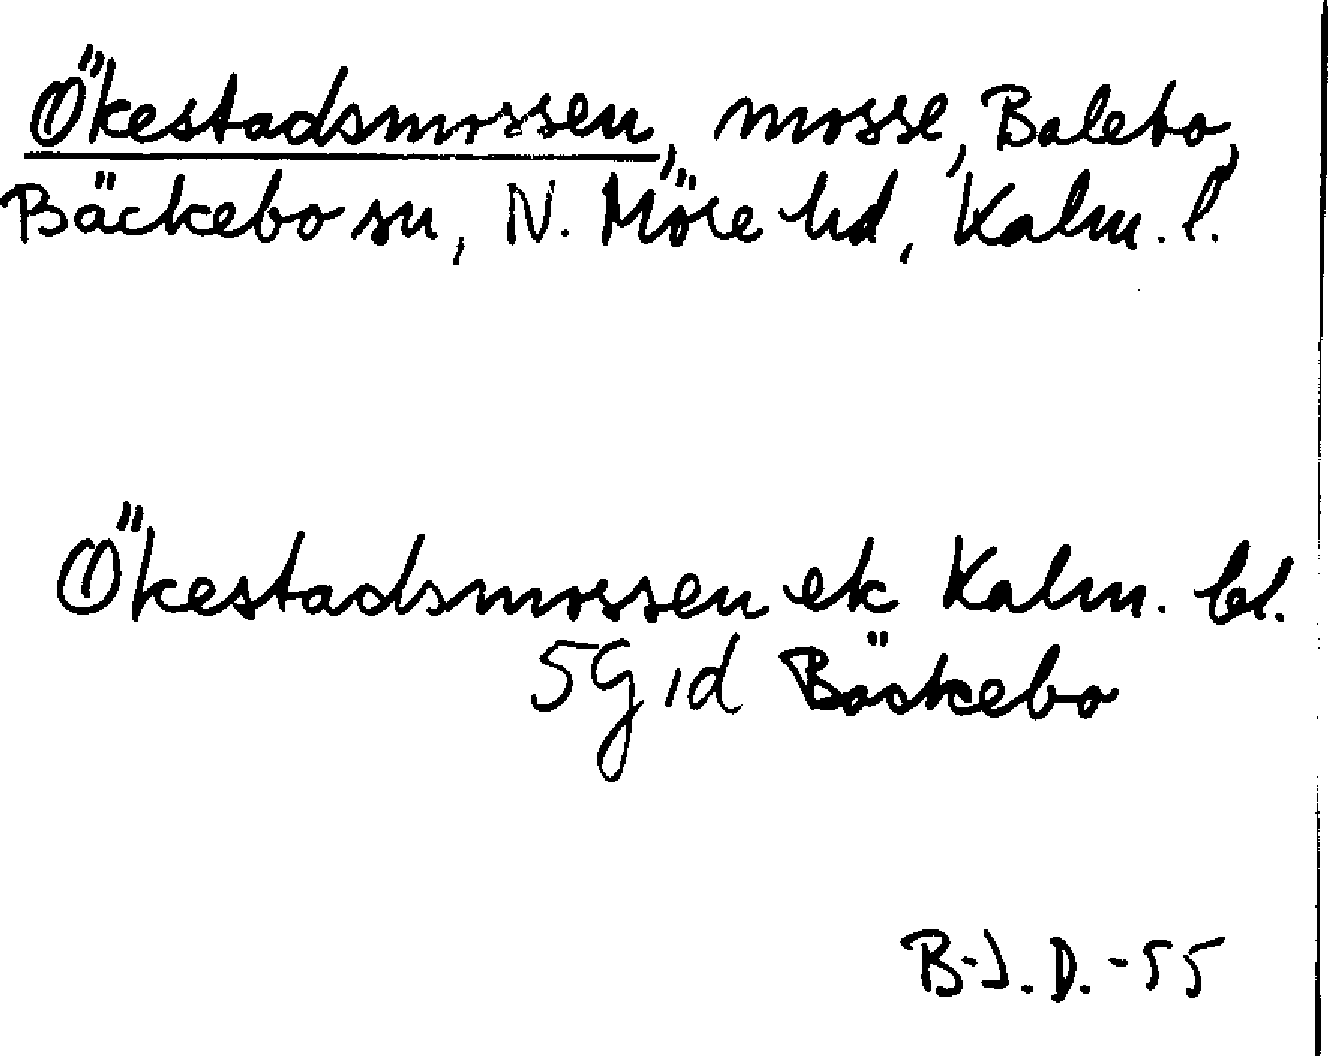 Ökestadsmossen, mosse, Balebo,
Bäckebo sn, N. Möre hd, Kalm. l.
Ökestadsmossen ek Kalm. bl.
5G 1d Bäckebo
B-J. D. -55